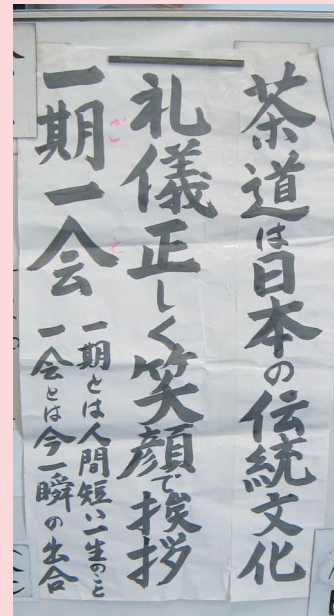 茶道は日本の伝統文化
礼儀正しく笑顔で挨拶
一期一会
一期とは人間短い一生のこと
一会とは今一瞬の出合